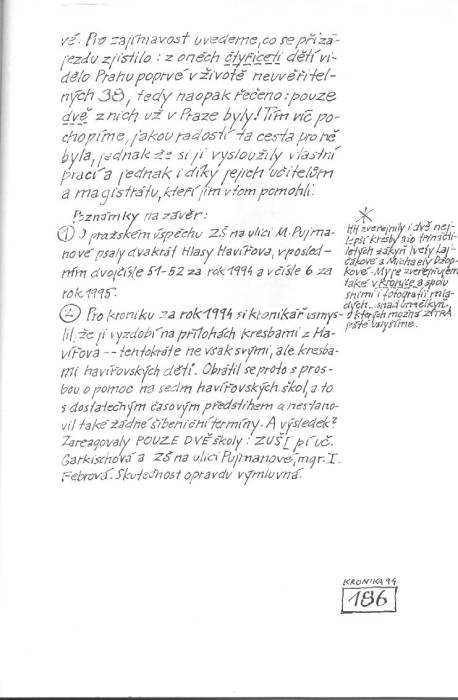 vé. Pro zajímavost uvedeme, co se při zá-
jezdu zjistilo: z oněch čtyřiceti dětí vi-
dělo Prahu poprvé v životě neuvěřitel-
ných 38, tedy naopak řečeno: pouze
dvě z nich už v Praze byly! Tím víc po-
chopíme, jakou radostí ta cesta pro ně
byla, jednak že si ji vysloužily vlastní
prací a jednak i díky jejich učitelům
a magistrátu, kteří jim v tom pomohli.
Poznámky na závěr:
1 O pražském úspěchu ZŠ na ulici M. Pujma-
nové psaly dvakrát Hlasy Havířova, v posled-
ním dvojčísle 51-52 za rok 1994 a v čísle 6 za
rok 1995.
2 Pro kroniku za rok 1994 si kronikář usmys-
lil, že ji vyzdobí na přílohách kresbami z Ha-
vířova -- tentokráte ne však svými, ale kresba-
mi havířovských dětí. Obrátil se proto s pros-
bou o pomoc na sedm havířovských škol, a to
s dostatečným časovým předstihem a nestano-
vil také žádné šibeniční termíny. A výsledek?
Zareagovaly POUZE DVĚ školy: ZUŠ I pí uč.
Garkischová a ZŠ na ulici Pujmanové, mgr. I.
Febrová. Skutečnost opravdu výmluvná.
*
HH zveřejnily i dvě nej-
lepší kresby a to třinácti-
letých žákyň Ivety Laj-
čákové a Michaely Dzop-
kové. My je zveřejňujem
také v kronice a spolu
s nimi i fotografii mla-
dých... snad umělkyň,
o kterých možná ZÍTRA
ještě uslyšíme.
KRONIKA 94
186